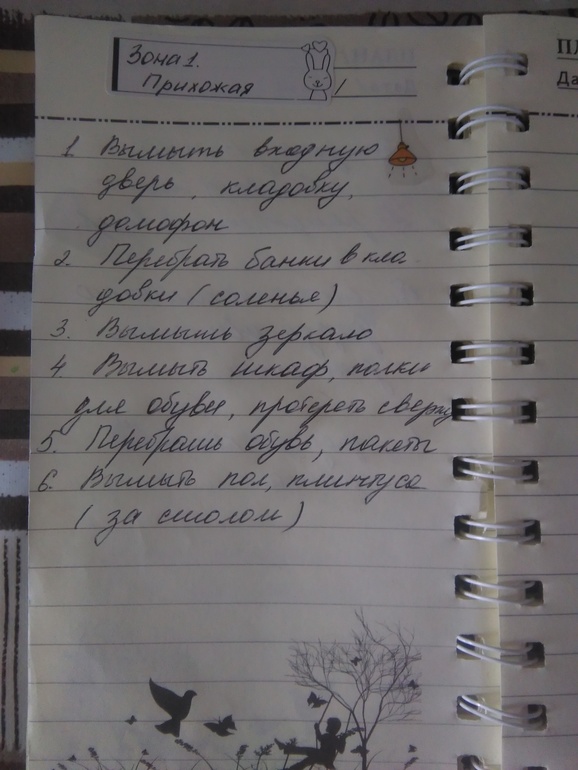 Зона 1.
Прихожая
1. Вымыть входную
дверь, кладовку,
домофон
2. Перебрать банки в кла
довки (соленья)
3. Вымыть зеркало
4. Вымыть шкаф, полки
для обуви, протереть сверху
5. Перебрать обувь, пакеты
6. Вымыть пол, плинтуса
(за столом)